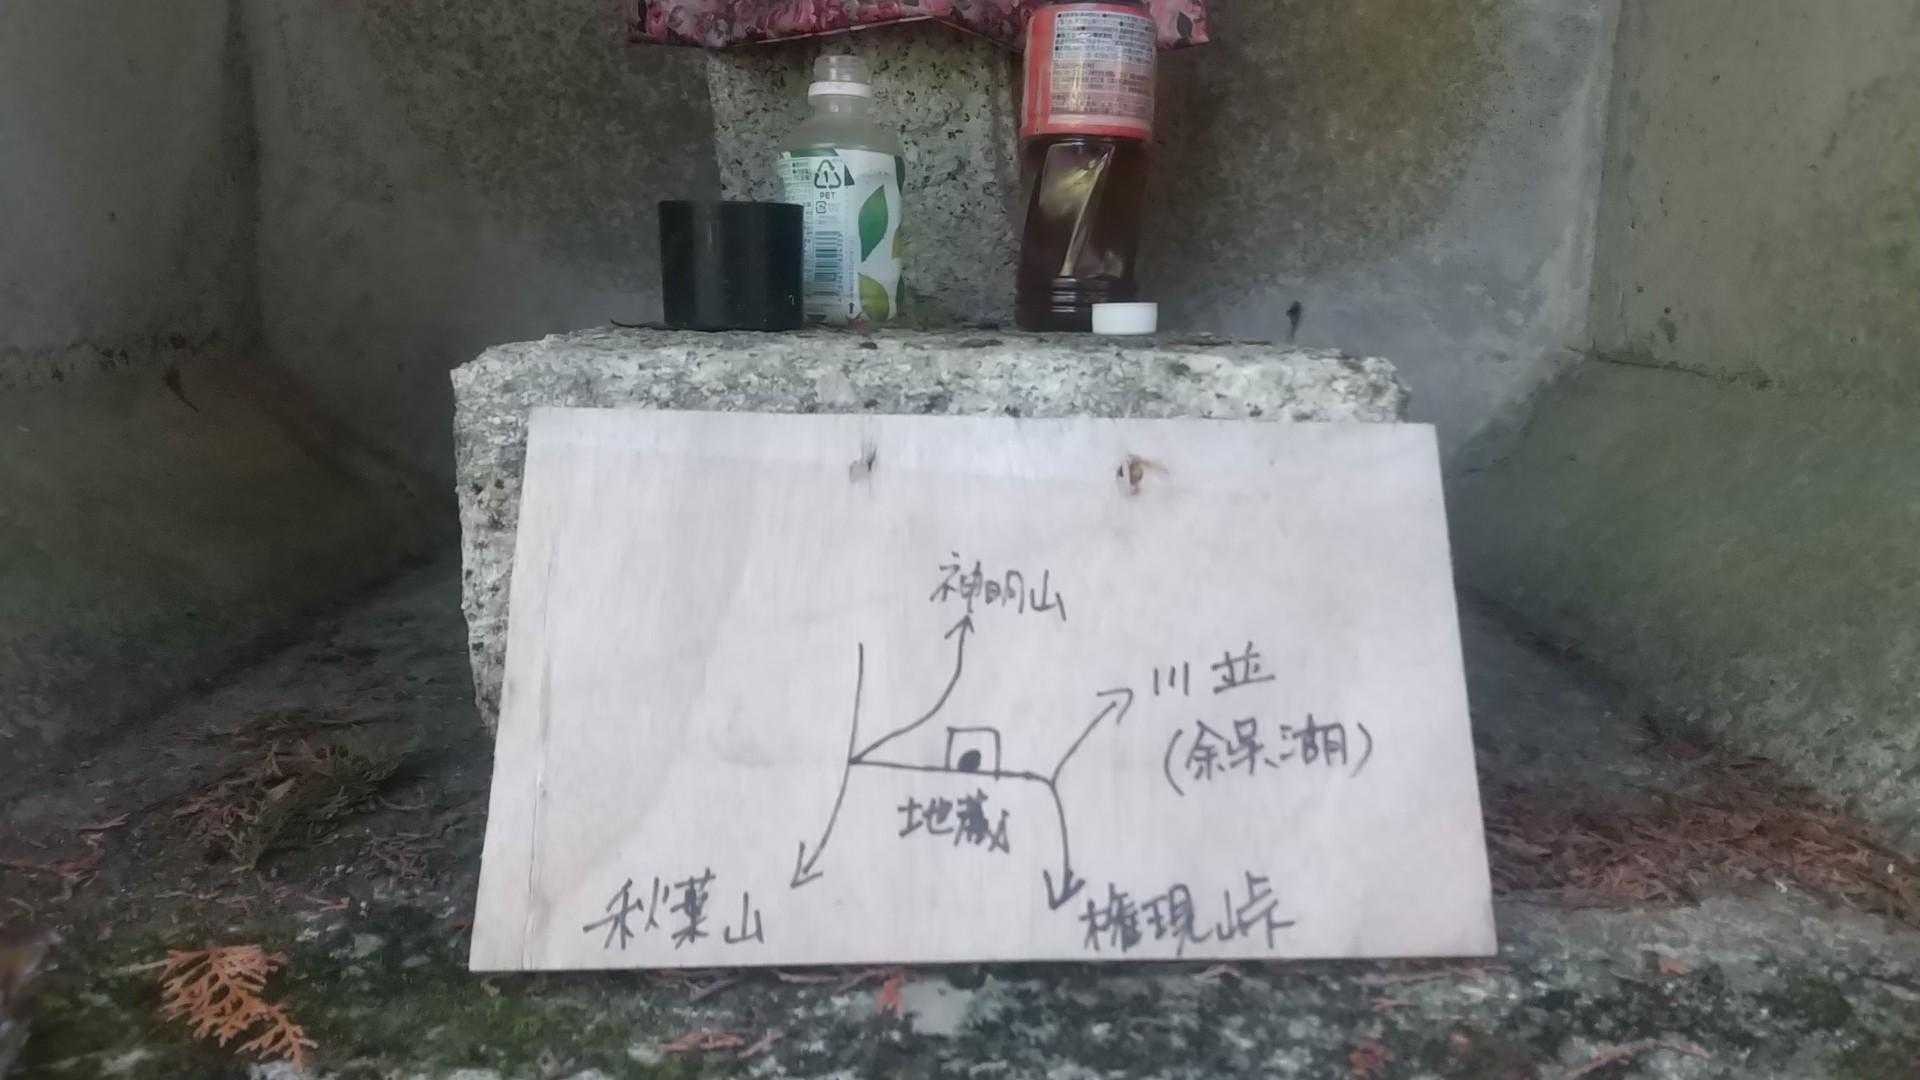 PET
神明山
川並
(余呉湖)
地蔵
秋葉山
権現峠